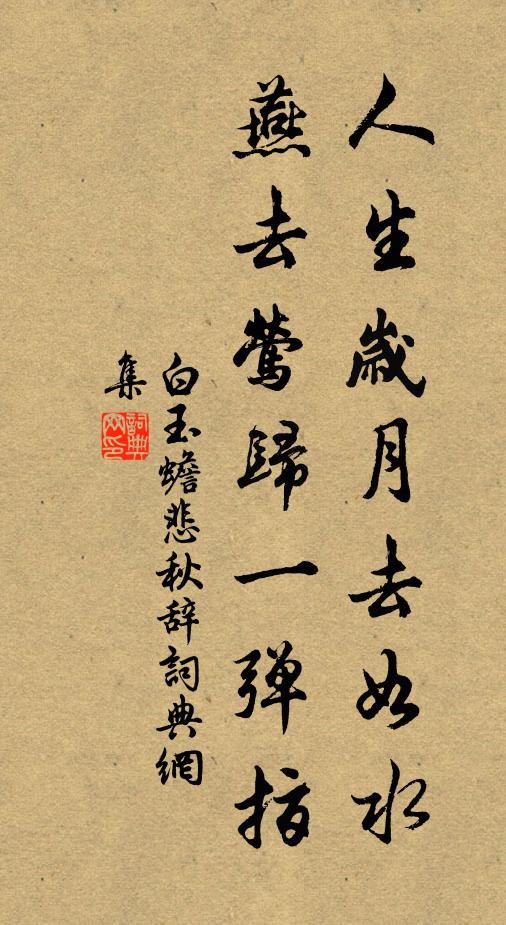 人生歲月去如水
燕去鶯歸一彈指
白玉蟾悲秋辞詞典網
集
詞典網印